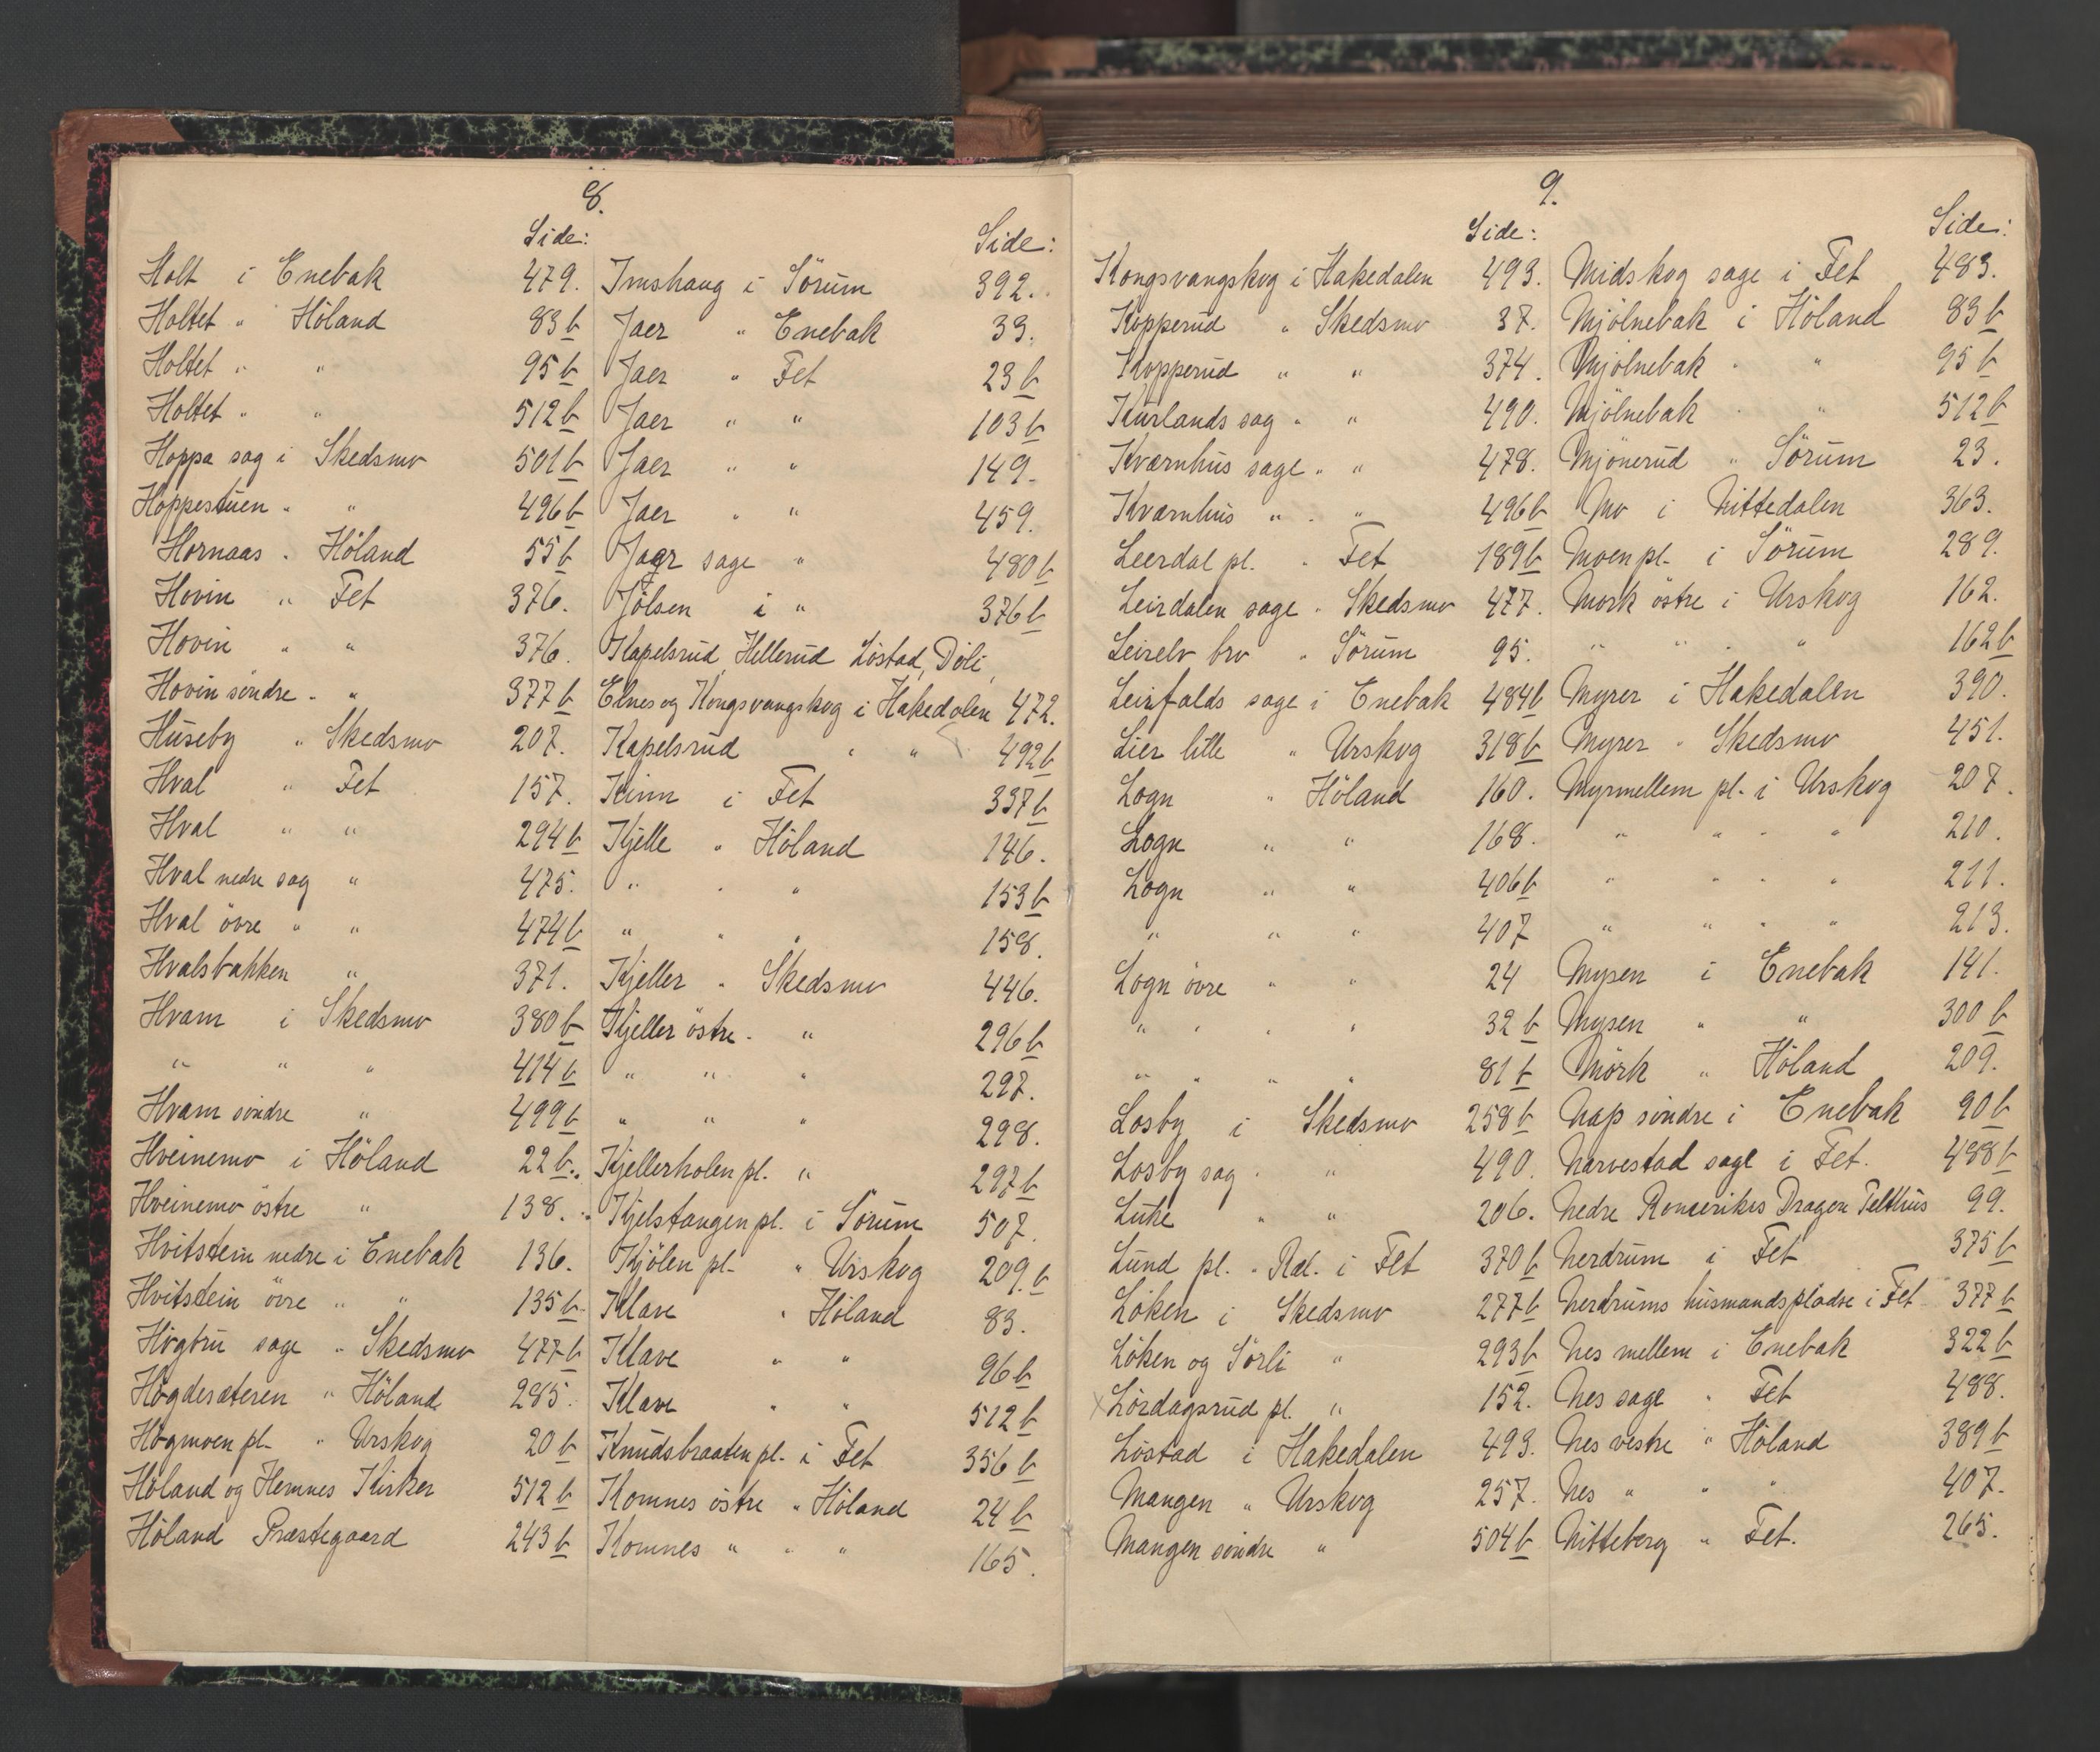 8.
Side:
Holt i Enebak 479.
Holtet " Höland 83 b
Holtet " " 95 b
Holtet " " 512 b
Hoppa sag i Skedsmo 501 b
Hoppestuen " " 496 b
Hornaas " Höland 55 b
Hovin " Fet 376.
Hovin " " 376.
Hovin söndre " " 377 b
Huseby " Skedsmo 207.
Hval " Fet 157.
Hval " " 294 b
Hval nedre sag " 475.
Hval övre " " 474 b
Hvalsbakken " 371.
Hvam i Skedsmo 380 b
" " " 414 b
Hvam söndre " 499 b
Hveinemo i Höland 22 b.
Hveinemo östre " 138.
Hvitstein nedre i Enebak 136.
Hvitstein övre " " 135 b
Högbru sage " Skedsmo 477 b
Högdesæteren " Höland 285.
Högmoen pl. " Urskog 20 b
Höland og Hemnes Kirker 512 b
Höland Præstegaard 243 b
Side:
Imshaug i Sörum 392.
Jaer " Enebak 33.
Jaer " Fet 23 b
Jaer " " 103 b
Jaer " " 149.
Jaer " " 459.
Jaer sage " 480 b
Jölsen i " 376 b
Kapelsrud, Hellerud Löstad, Döli,
Elnes og Kongsvangskog i Hakedalen 472.
Kapelsrud " " 492 b
Kinn i Fet 337 b
Kjelle " Höland 146.
" " " 153 b
" " " 158.
Kjeller " Skedsmo 446.
Kjeller östre " " 296 b
" " " 297.
" " " 298.
Kjellerholen pl. " 297 b
Kjelstangen pl. i Sörum 507.
Kjölen pl. " Urskog 209. b
Klave " Höland 83.
Klave " " 96 b
Klave " " 512 b
Knudsbraaten pl. i Fet 356 b
Komnes östre " Höland 24 b
Komnes " " " 165.
9.
Side:
Kongsvangskog i Hakedalen 493.
Kopperud " Skedsmo 37.
Kopperud " " 374.
Kurlands sag " " 490.
Kværnhus sage " " 478.
Kværnhus " " " 496 b
Leerdal pl. " Fet 189 b
Leirdalen sage " Skedsmo 477.
Leirelv bro " Sörum 95.
Leirfalds sage i Enebak 484 b
Lier lille " Urskog 318 b
Logn " Höland 160.
Logn " " 168.
Logn " " 406 b
" " " 407
Logn övre " " 24
" " " " 32 b
" " " " 81 b
Losby i Skedsmo 258 b
Losby sag " " 490.
Luke " " 206.
Lund pl. " Ræl. i Fet 370 b
Löken i Skedsmo 277 b
Löken og Sörli " 293 b
x Lördagsrud pl. " 152.
Löstad i Hakedalen 493.
Mangen " Urskog 257.
Mangen söndre " 504 b
Side:
Midskog sage i Fet 483.
Mjölnebak i Höland 83 b
Mjölnebak " " 95 b
Mjölnebak " " 512 b
Mjönerud " Sörum 23.
Mo i Nittedalen 363.
Moen pl. i Sörum 289.
Mork östre i Urskog 162.
" " " " 162 b
Myrer i Hakedalen 390.
Myrer " Skedsmo 451.
Myrmellem pl. i Urskog 207.
" " " " 210.
" " " " 211.
" " " " 213.
Mysen i Enebak 141.
Mysen " " 300 b
Mörk " Höland 209.
Nap söndre i Enebak 90 b
Narvestad sage i Fet. 488 b
Nedre Romerikes Dragon Telthus 99.
Nerdrum i Fet 375 b
Nerdrums husmandspladse i Fet 377 b
Nes mellem i Enebak 322 b
Nes sage " Fet 488.
Nes vestre " Höland 389 b
Nes " " " 407.
Nitteberg " Fet. 265.